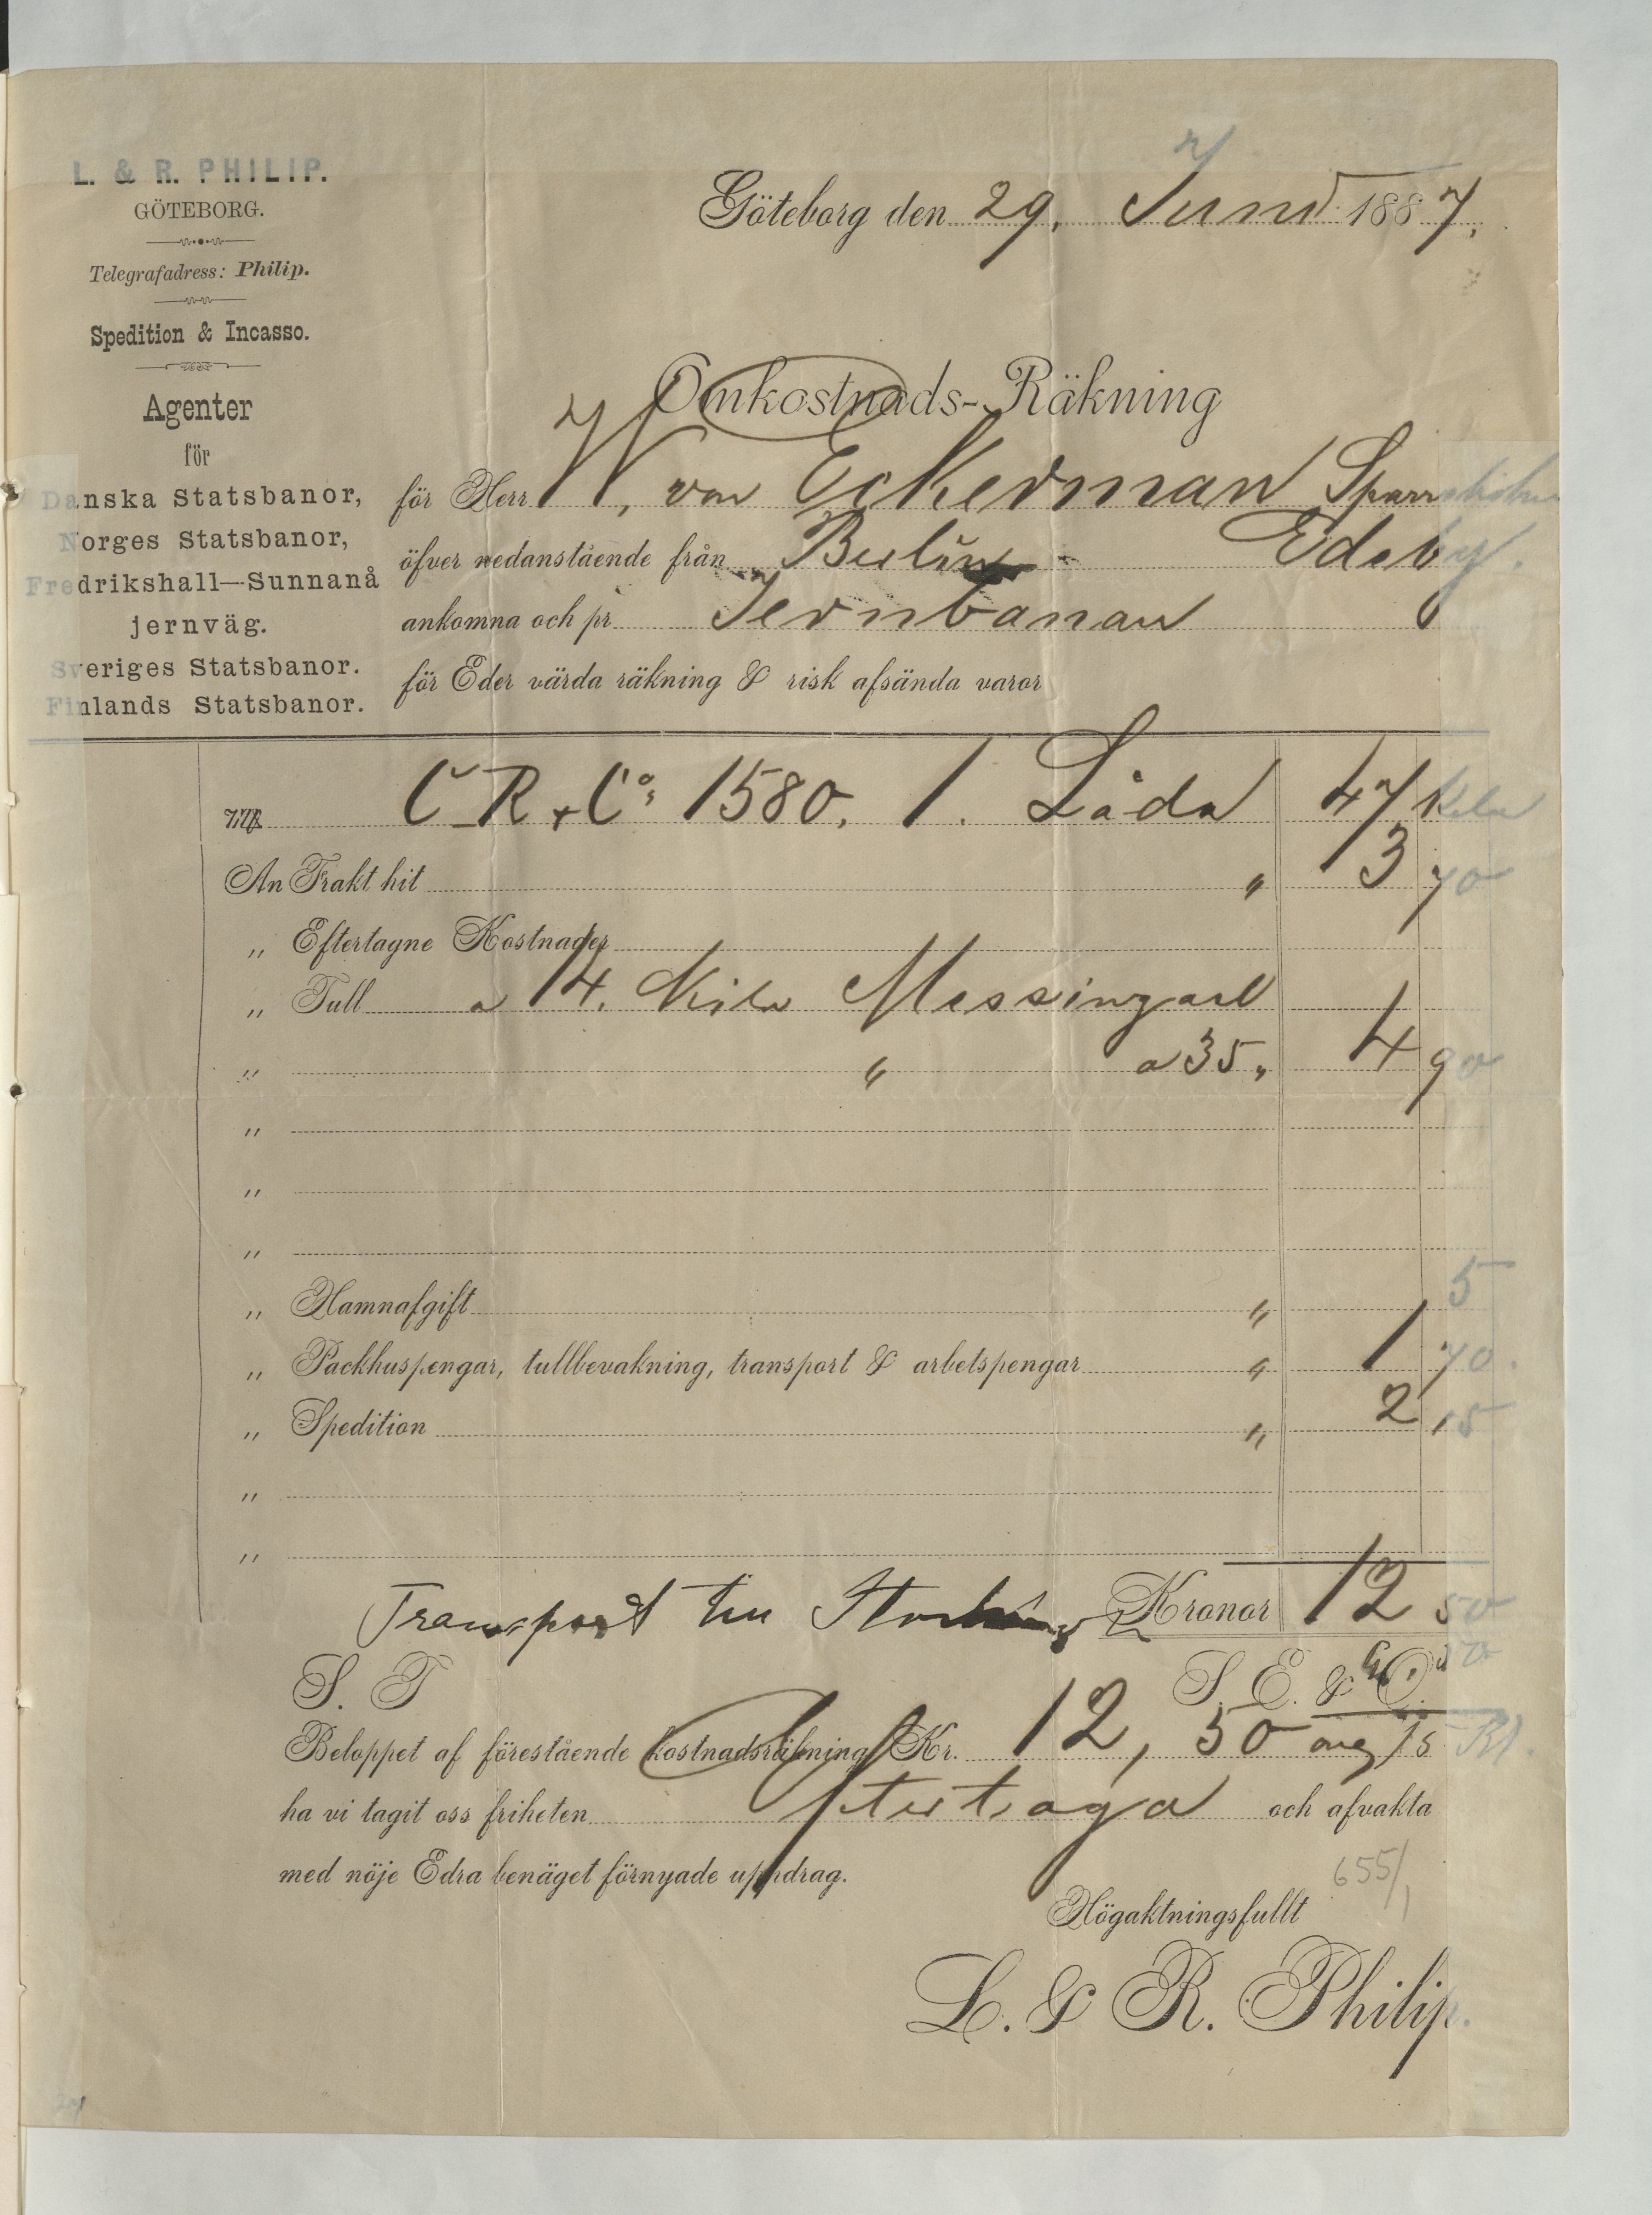 L. & R. PHILIP.
GÖTEBORG.
Telegrafadress: Philip.
Spedition & Incasso.
Agenter
för
Danska Statsbanor,
Norges Statsbanor,
Fredrikshall—Sunnanå
jernväg.
Sveriges Statsbanor.
Finlands Statsbanor.
Göteborg den 29. Juni 1887.
Omkostnads-Räkning
för Herr W. von Eckerman Sparreholm
öfver nedanstående från Berlin Edeby.
ankomna och pr Jernbanan
för Eder värda räkning & risk afsända varor
C R & Co; 1580. 1. Låda 47 Kilo
An Frakt hit " 3 70
" Eftertagne Kostnader
" Tull a 14. Kilo Messingarb
" " a 35, 4 90
"
"
"
" Hamnafgift " 5
" Packhuspengar, tullbevakning, transport & arbetspengar " 1 70.
" Spedition " 2 15
"
"
Transport till Kronor 12 50
S. T S. E. & O.
Beloppet af förestående kostnadsräkning Kr. 12, 50
ha vi tagit oss friheten eftertaga och afvakta
med nöje Edra benäget förnyade uppdrag.
655/1
Högaktningsfullt
L. & R. Philip.